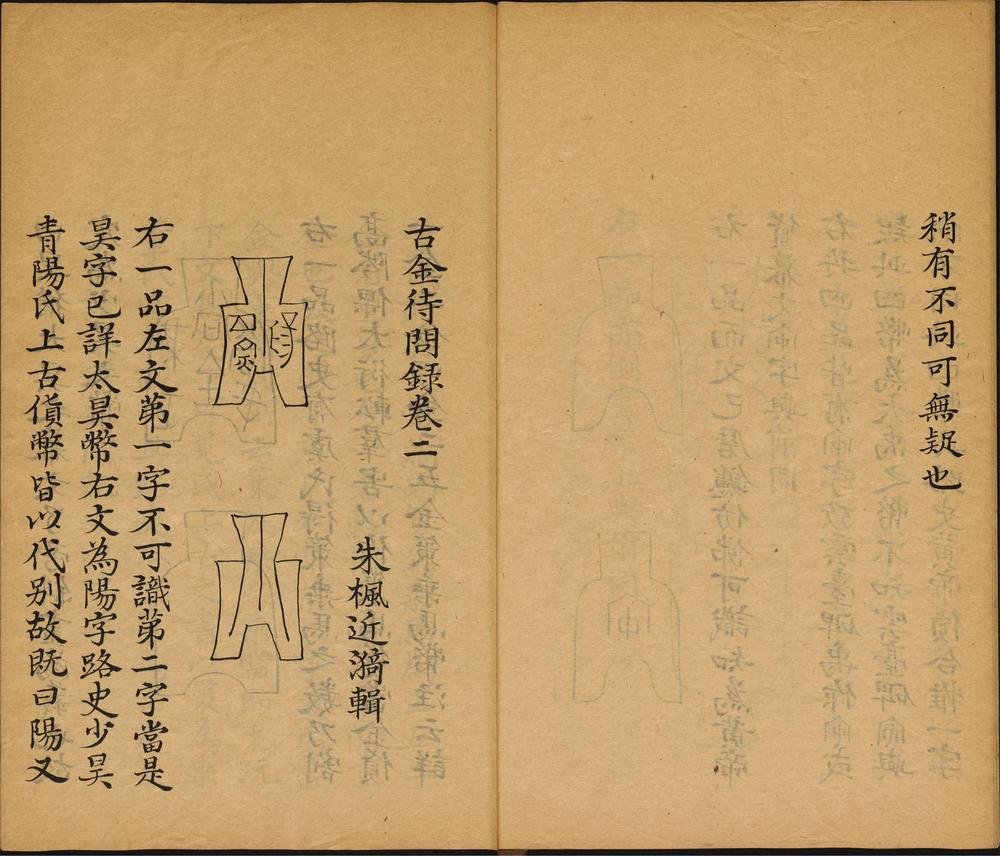 稍有不同可無疑也
古金待問録卷二
朱楓近漪輯
右一品左文苐一字不可識苐二字當是
昊字已詳太昊幣右文為陽字路史少昊
青陽氏上古貨幣皆以代别故既曰陽又